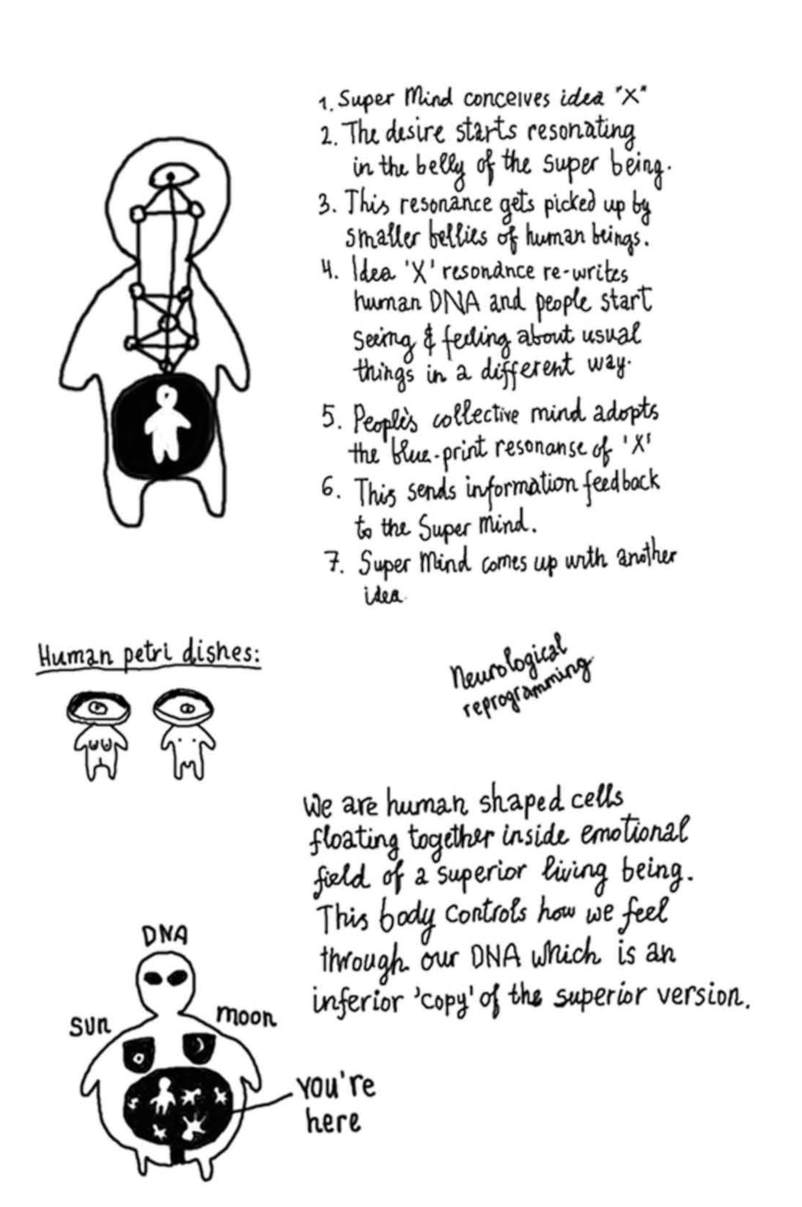 1. Super Mind conceives idea "X"
2. The desire starts resonating
in the belly of the super being.
3. This resonance gets picked up by
smaller bellies of human beings.
4. Idea 'X' resonance re-writes
human DNA and people start
seeing & feeling about usual
things in a different way.
5. People's collective mind adopts
the blue-print resonanse of 'X'
6. This sends information feedback
to the Super Mind.
7. Super Mind comes up with another
idea.
Human petri dishes:
Neurological
reprogramming
We are human shaped cells
floating together inside emotional
field of a superior living being.
This body controls how we feel
through our DNA which is an
inferior 'copy' of the superior version.
DNA
sun
moon
you're
here